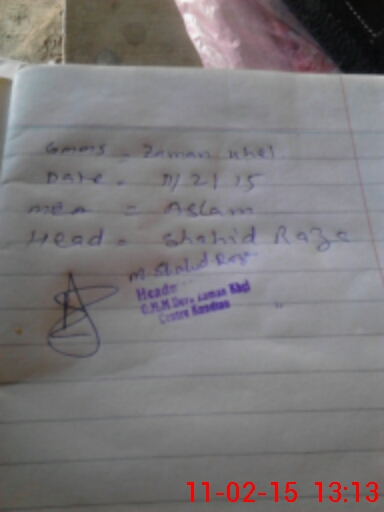 Gmms - Zaman Khel
Date = 11/2/15
mea = Aslam
Head = Shahid Raze
M. Shahid Raze
Head
G.M.M. Zaman Khel
Centre
11-02-15 13:13